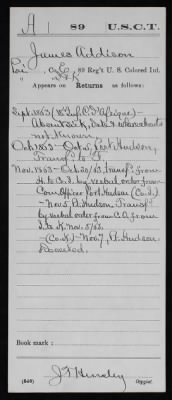 A | 89 | U.S.C.T.
James Addison
Co. 89 Reg't U. S. Colored Inf.
Appears on Returns as follows:
Sept. 1863
Absent sick, Date & whereabouts
not known.
Oct. 1863 - Oct. 5, Port Hudson,
Transf. to F.
Nov. 1863 - Oct. 20/63, Transf. from
H. to I. by verbal order from
Com. Officer Port Hudson (Co. I.)
- Nov. 5, P. Hudson. Transf.
by verbal order C.O. from
I. to K. Nov. 5/63.
(Co. K.) - Nov. 7, P. Hudson
Deserted.
Book mark:
(546)
Copyist.